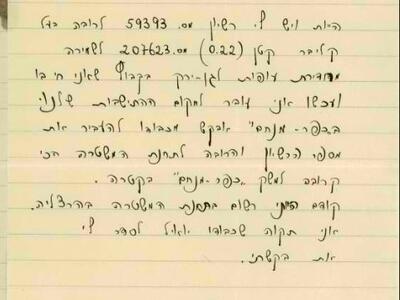 היות ויש לי רשיון מס. 59393 לרובה בעל
קליבר קטן (0.22) מס. 207623 לשמירה
מחדירת עופות לגן-ירק בקבוץ שאני חי בו
ועכשו אני עובר למקום ההתישבות שלנו,
ב"כפר-מנחם" אבקש מכבודו להעביר את
מספר הרשיון והרובה לתחנת המשטרה הכי
קרובה למשק "כפר-מנחם" בקטרה.
קודם הייתי רשום בתחנת המשטרה בהרצליה.
אני תקוה שכבודו יואיל לסדר לי
את בקשתי.